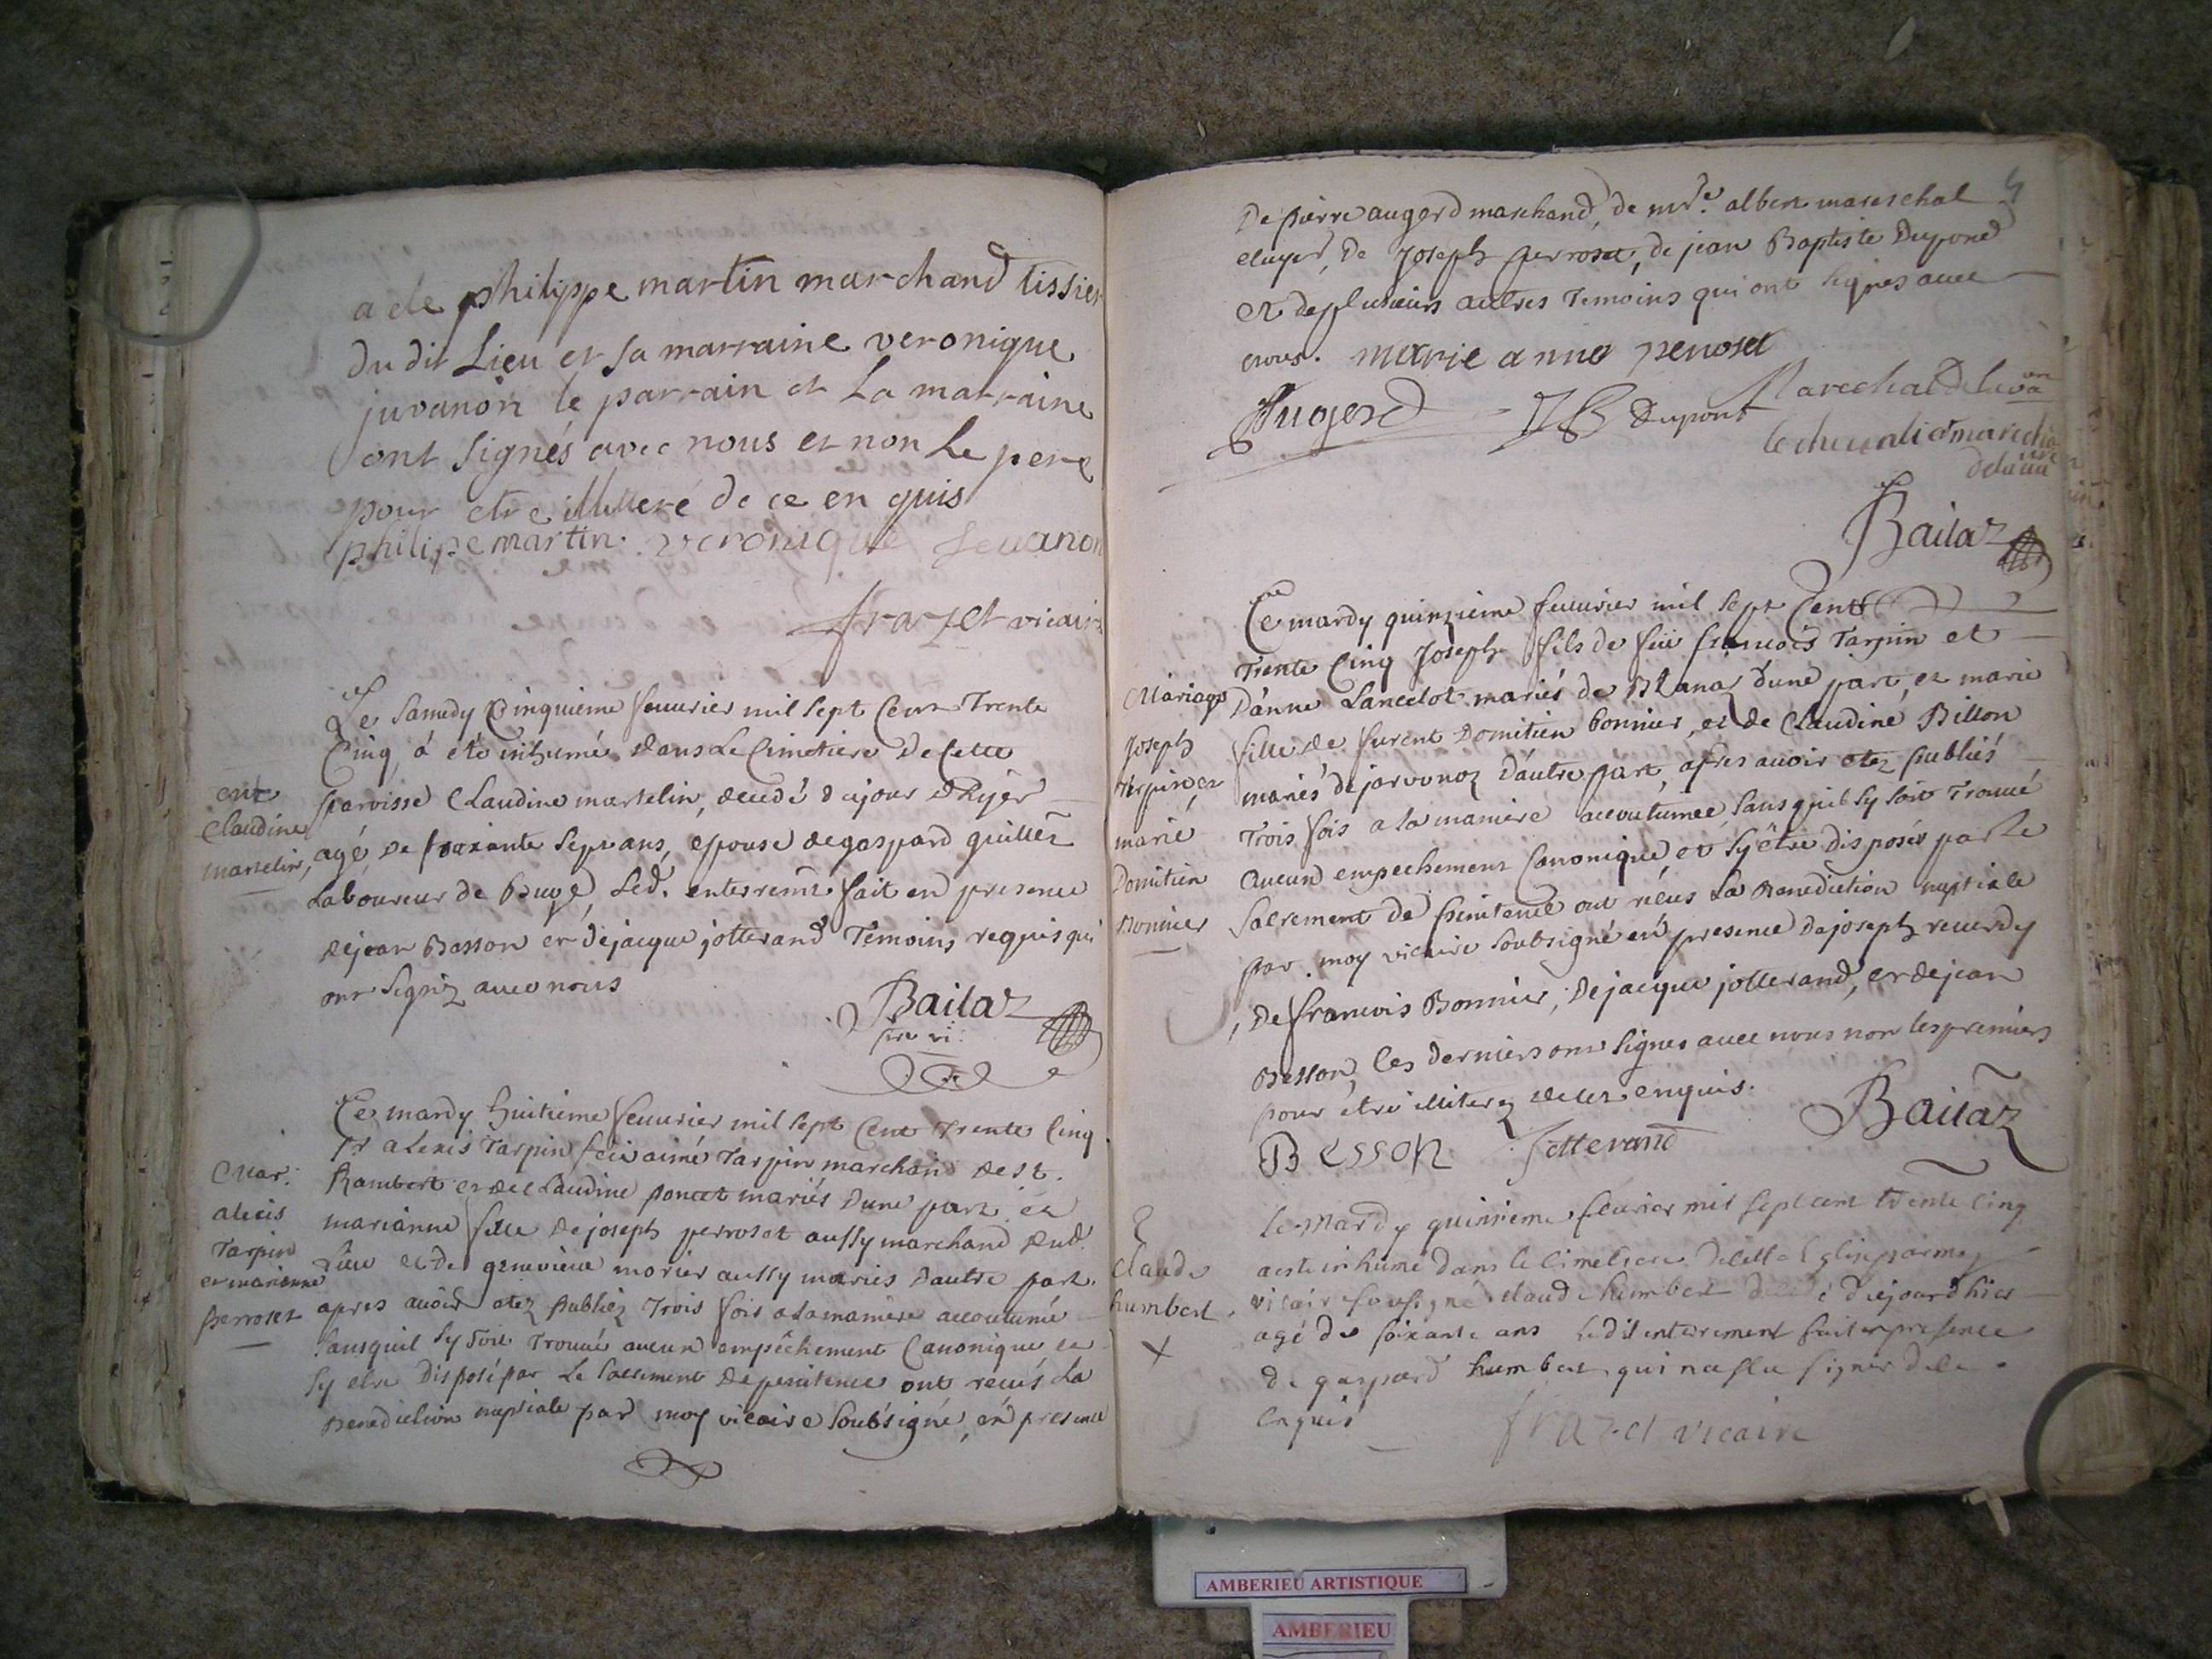 a ete philippe martin marchand tissier
du dit Lieu et sa marraine veronique
juvanon le parrain et La marraine
ont signés avec nous et non Le pere
pour etre illitteré de ce en quis
philipe martin. veronique Jeuanon
frazet vicaire
Le Samedy Cinquieme feuurier mil sept Cent Trente
Cinq, á été inhumé dans Le Cimetiere de Cette
parroisse Claudine martelin, decedé dujour d'hÿer
agé, de soixante Sept ans, epouse de gaspard guillet
Laboureur de Led. enterremt. fait en presence
dejean Basson et dejacque jotterand Temoins requis qui
ont Signéz auec nous
ent
Claudine
martelin,
Bailaz
pre vi:
Ce mardy huitieme feuurier mil sept Cent Trente Cinq
Sr alexis Tarpin feü aimé Tarpin marchand de St.
Rambert et de Claudine poncet mariés d'une part et
marianne fille dejoseph perroset aussy marchand dud.
Lieu et de genevieve morier aussy mariés d'autre part.
apres auoir etez publiéz Trois fois a la maniere accoutumé
Sans quil sy soit Trouué aucun empêchement Canonique et
sy etre disposé par Le Sacrement de penitence ont recüs La
Benediction nuptiale par moy vicaire Soubsigné, en presence
Mar:
alexis
Tarpin
et marianne
perroset
4
De pierre augerd marchand, de mre. albert mareschal
ecuyer, de Joseph perroset, de jean Baptiste Dupond
et de plusieurs autres Temoins qui ont signes auec
nous. marie anne peroset
Augerd JB Dupont
Bailaz
Ce mardy quinzieme feuurier mil sept Cent
Trente Cinq Joseph fils de feü francois Tarpin et
D'anne Lancelot mariés de Blanaz d'une part, et marie
fille de furent Domitien bonnier, et de Claudine Billon
mariés de jarvonoz D'autre part, apres auoir etez publiés
Trois fois a la maniere accoutumée, Sans quil sy soit Trouué
Aucun empechement Canonique et sy être disposés par Le
Sacrement de penitence ont recus La Benediction nuptiale
par moy vicaire Soubsigné en presence de joseph reuerdy
, de francois Bonnier, de jacque jotterand, et de jean
Besson, les derniers ont signes auec nous non les premiers
pour être illiterez de ce enquis.
Mariage
Joseph
Tarpin et
marie
Domitien
Bonnier
Besson Jotterand Bailaz
le mardy quinzieme feurier mil sept cent trente cinq
a este inhumé dans le cimetiere de cette Eglise par moy
vicaire soussigné claude humbert decedé du jourd hier
agé de soixante ans le dit enterrement fait en presence
de gaspard humbert qui na sçu signer de ce
enquis
Claude
humbert
frazet vicaire
AMBERIEU ARTISTIQUE
AMBERIEU